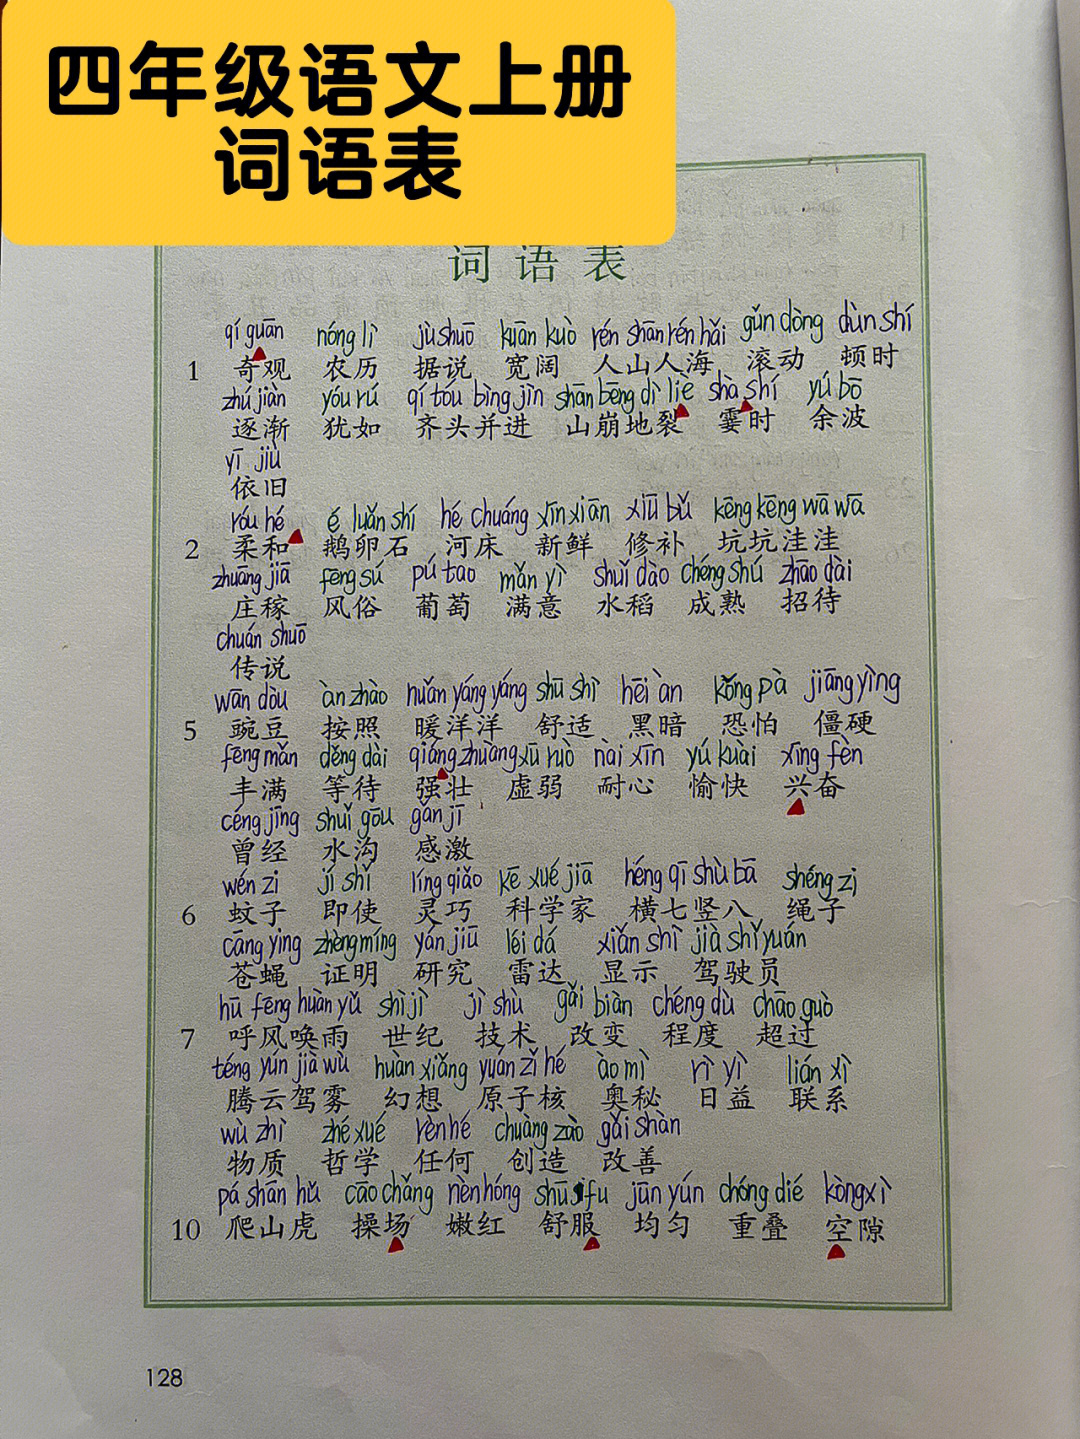 四年级语文上册
词语表
词语表
qí guān nóng lì jù shuō kuān kuò rén shān rén hǎi gǔn dòng dùn shí
1 奇观 农历 据说 宽阔 人山人海 滚动 顿时
zhú jiàn yóu rú qí tóu bìng jìn shān bēng dì liè shà shí yú bō
逐渐 犹如 齐头并进 山崩地裂 霎时 余波
yī jiù
依旧
róu hé é luǎn shí hé chuáng xīn xiān xiū bǔ kēng kēng wā wā
2 柔和 鹅卵石 河床 新鲜 修补 坑坑洼洼
zhuāng jiā fēng sú pú tao mǎn yì shuǐ dào chéng shú zhāo dài
庄稼 风俗 葡萄 满意 水稻 成熟 招待
chuán shuō
传说
wān dòu àn zhào nuǎn yáng yáng shū shì hēi àn kǒng pà jiāng yìng
5 豌豆 按照 暖洋洋 舒适 黑暗 恐怕 僵硬
fēng mǎn děng dài qiáng zhuàng xū ruò nài xīn yú kuài xīng fèn
丰满 等待 强壮 虚弱 耐心 愉快 兴奋
céng jīng shuǐ gōu gǎn jī
曾经 水沟 感激
wén zi jí shǐ líng qiǎo kē xué jiā héng qī shù bā shéng zi
6 蚊子 即使 灵巧 科学家 横七竖八 绳子
cāng ying zhèng míng yán jiū léi dá xiǎn shì jià shǐ yuán
苍蝇 证明 研究 雷达 显示 驾驶员
hū fēng huàn yǔ shì jì jì shù gǎi biàn chéng dù chāo guò
7 呼风唤雨 世纪 技术 改变 程度 超过
téng yún jià wù huàn xiǎng yuán zǐ hé ào mì rì yì lián xì
腾云驾雾 幻想 原子核 奥秘 日益 联系
wù zhì zhé xué rèn hé chuàng zào gǎi shàn
物质 哲学 任何 创造 改善
pá shān hǔ cāo chǎng nèn hóng shū fu jūn yún chóng dié kòng xì
10 爬山虎 操场 嫩红 舒服 均匀 重叠 空隙
128